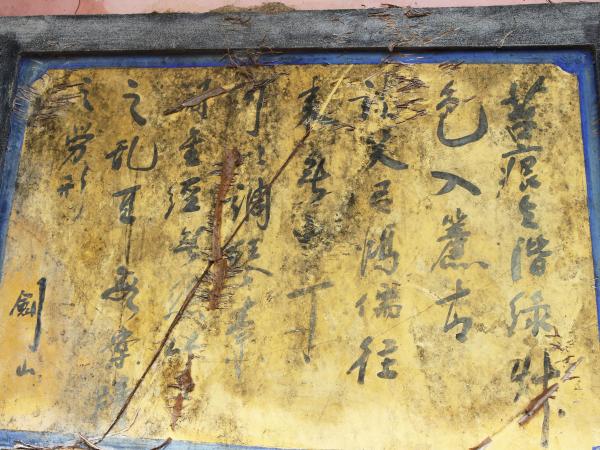 苔痕上階綠艸
色入簾青
談笑有鴻儒往
來無白丁
可以調素琴
閱金經無絲竹
之乱耳無案牘
之勞形
劍山